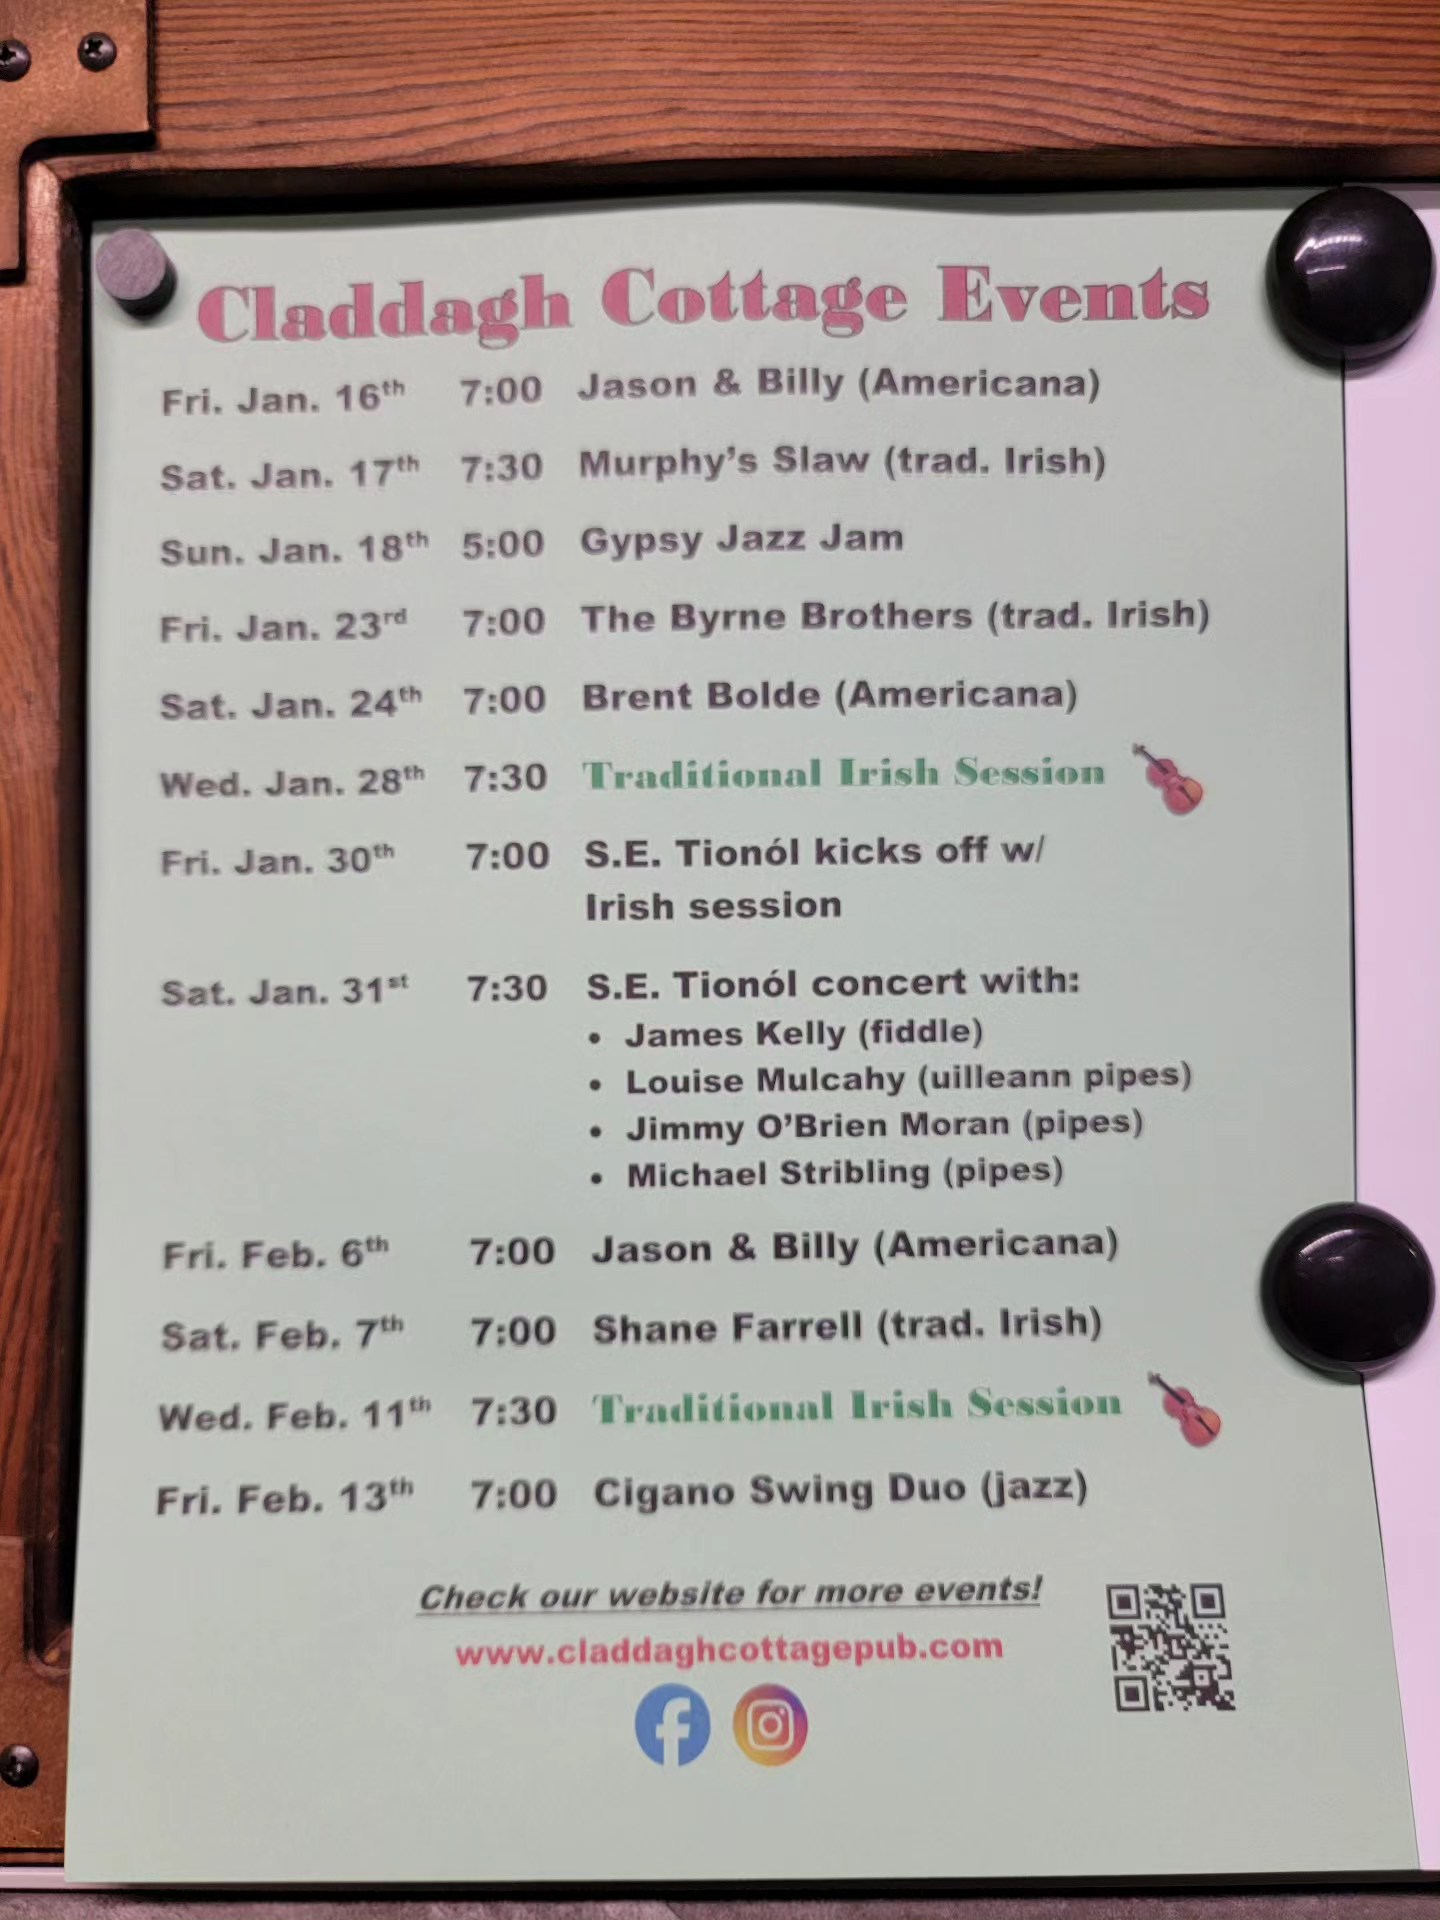 Claddagh Cottage Events
Fri. Jan. 16th 7:00 Jason & Billy (Americana)
Sat. Jan. 17th 7:30 Murphy's Slaw (trad. Irish)
Sun. Jan. 18th 5:00 Gypsy Jazz Jam
Fri. Jan. 23rd 7:00 The Byrne Brothers (trad. Irish)
Sat. Jan. 24th 7:00 Brent Bolde (Americana)
Wed. Jan. 28th 7:30 Traditional Irish Session
Fri. Jan. 30th 7:00 S.E. Tionól kicks off w/
Irish session
Sat. Jan. 31st 7:30 S.E. Tionól concert with:
• James Kelly (fiddle)
• Louise Mulcahy (uilleann pipes)
• Jimmy O'Brien Moran (pipes)
• Michael Stribling (pipes)
Fri. Feb. 6th 7:00 Jason & Billy (Americana)
Sat. Feb. 7th 7:00 Shane Farrell (trad. Irish)
Wed. Feb. 11th 7:30 Traditional Irish Session
Fri. Feb. 13th 7:00 Cigano Swing Duo (jazz)
Check our website for more events!
www.claddaghcottagepub.com